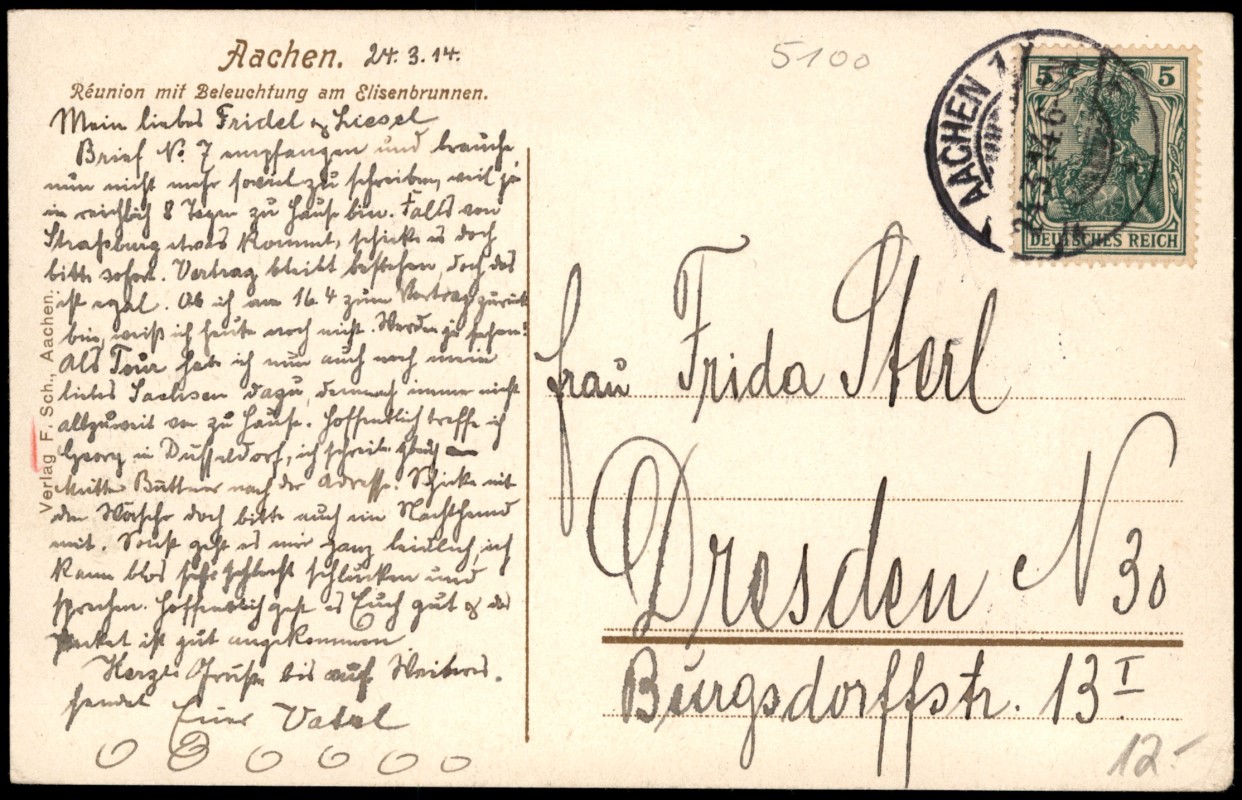 Aachen. 24. 3. 14.
Réunion mit Beleuchtung am Elisenbrunnen.
Mein liebes Fridel & Liesel
Brief No. 7 empfangen und brauche
nun nicht mehr soviel zu schreiben, weil ja
in reichlich 8 Tagen zu Hause bin. Falls von
Straßburg etwas kommt, schicke es doch
bitte sofort. Vertrag bleibt bestehen, doch das
ist egal. Ob ich am 16.4 zum Vortrag zurück
bin, weiß ich heute noch nicht. Werden ja sehen!
Als Tour habe ich nun auch noch mein
liebes Sachsen dazu, demnach immer nicht
allzuweit von zu Hause. Hoffentlich treffe ich
Georg in Düsseldorf, ich schreibe
Mutter Büttner nach der Adresse. Schicke mit
der Wäsche doch bitte auch ein Nachthemd
mit. Sonst geht es mir ganz leidlich, ich
kann blos sehr schlecht schlucken und
sprechen. Hoffentlich geht es Euch gut & das
Packet ist gut angekommen.
Herzl. Grüße bis auf
Euer
Verlag F. Sch., Aachen.
5100
AACHEN 1
24.3.14
5 5
DEUTSCHES REICH
Frau Frida Sterl
Dresden N 30
Burgsdorffstr. 13 I
12.-